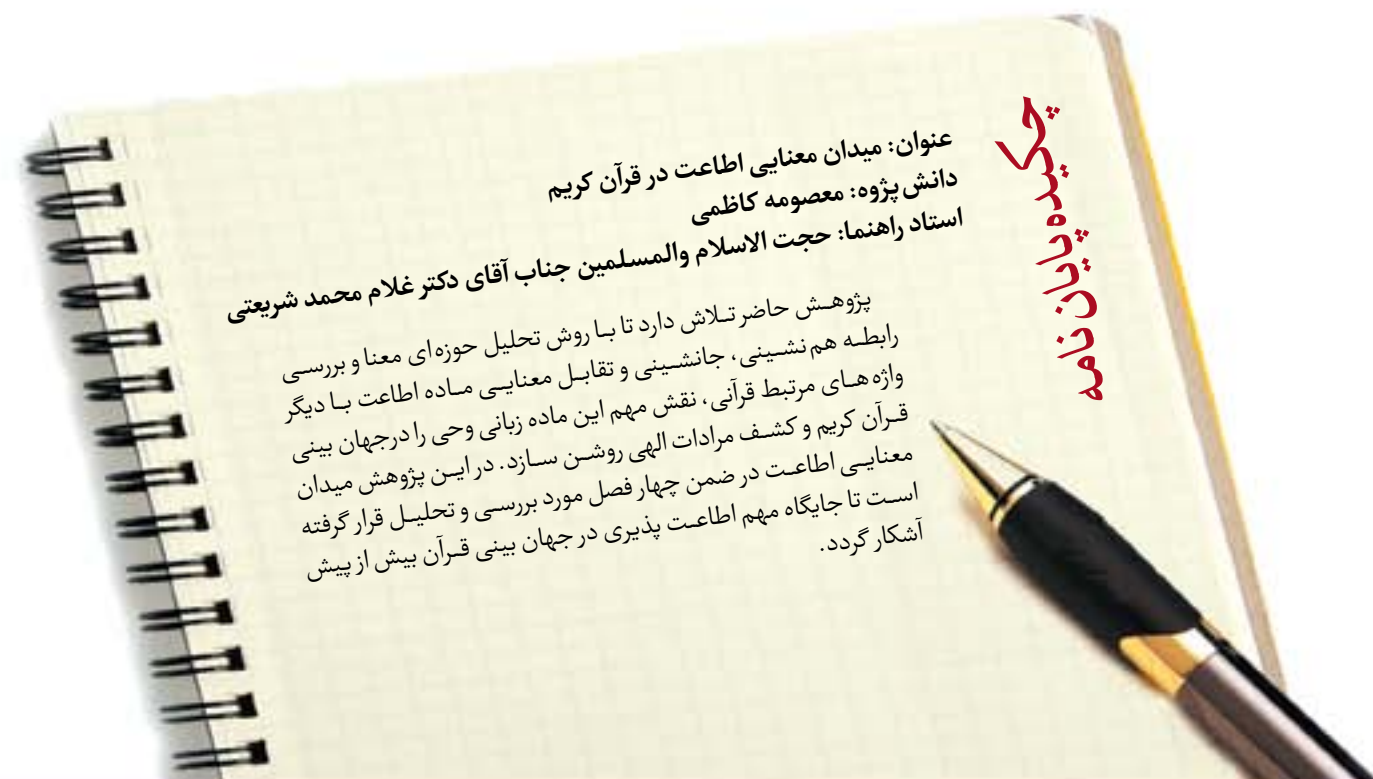 چکیده پایان نامه
عنوان: میدان معنایی اطاعت در قرآن کریم
دانش‌پژوه: معصومه کاظمی
استاد راهنما: حجت الاسلام والمسلمین جناب آقای دکتر غلام محمد شریعتی
پژوهـش حاضر تـلاش دارد تا بـا روش تحلیل حوزه‌ای معنا و بررسـی
رابطـه هم‌نشـینی، جانشـینی و تقابـل معنایـی مـاده اطاعت بـا دیگر
واژه‌هـای مرتبط قرآنی، نقش مهم این ماده زبانی وحی را درجهان بینی
قـرآن کریم و کشـف مرادات الهی روشـن سـازد. در ایـن پژوهش میدان
معنایـی اطاعـت در ضمن چهار فصل مورد بررسـی و تحلیـل قرار گرفته
اسـت تا جایگاه مهم اطاعـت پذیری در جهان بینی قـرآن بیش از پیش
آشکار گردد.